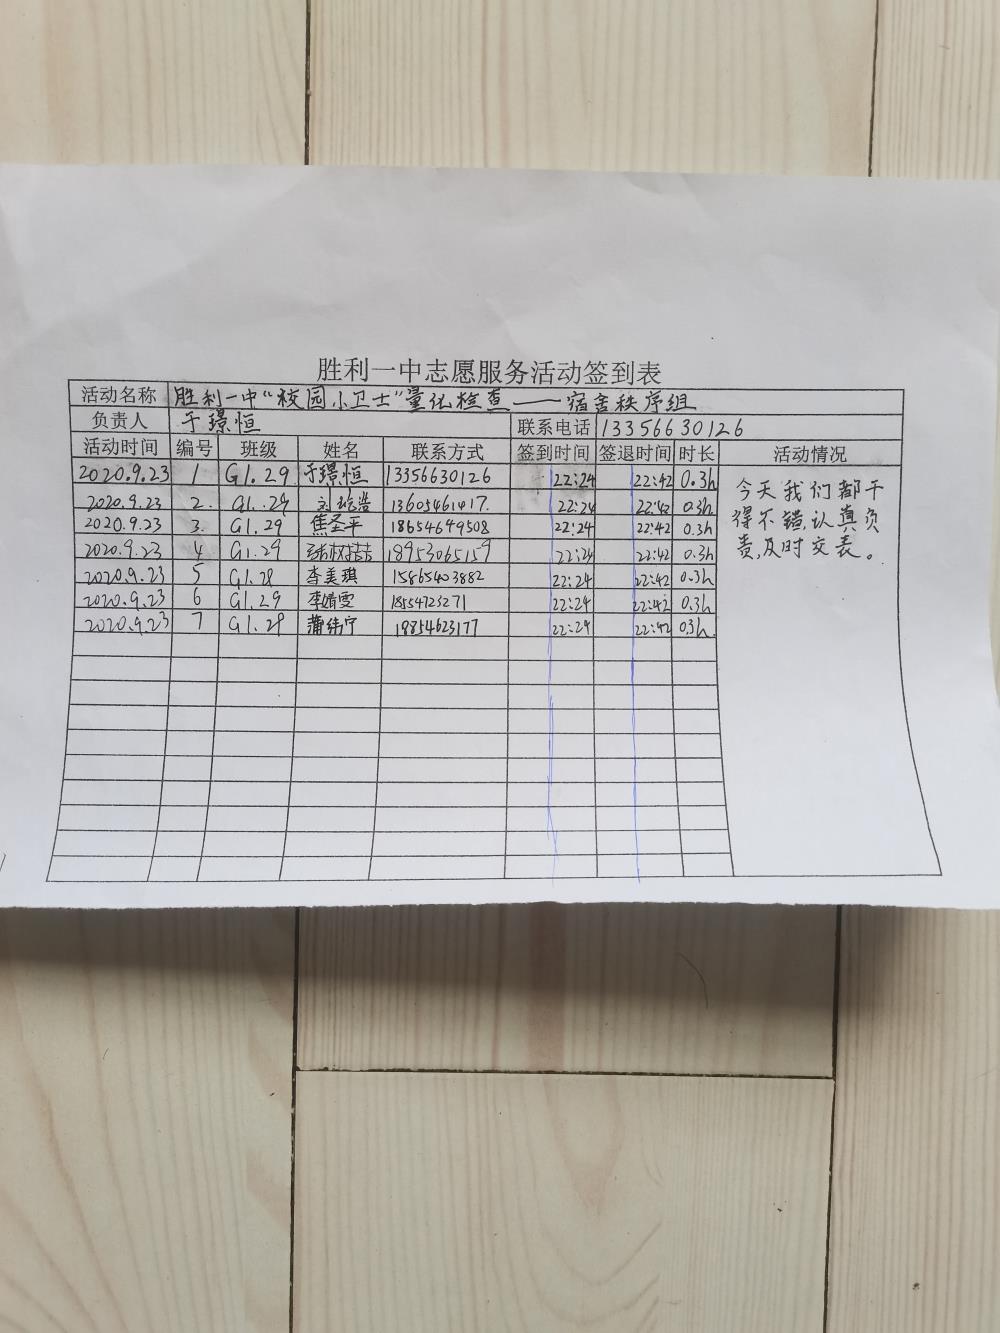 胜利一中志愿服务活动签到表
活动名称 胜利一中“校园小卫士”量化检查——宿舍秩序组
负责人 于璟恒 联系电话 13356630126
活动时间 编号 班级 姓名 联系方式 签到时间 签退时间 时长 活动情况
2020.9.23 1 G1.29 于璟恒 13356630126 22:24 22:42 0.3h
2020.9.23 2. G1.29 刘 浩 13605461417. 22:24 22:42 0.3h
2020.9.23 3. G1.29 焦圣平 18654649508 22:24 22:42 0.3h
2020.9.23 4 G1.29 18953065159 22:24 22:42 0.3h
2020.9.23 5 G1.28 李美琪 15865403882 22:24 22:42 0.3h
2020.9.23 6 G1.29 李婧雯 18554723271 22:24 22:42 0.3h
2020.9.23 7 G1.28 蒲纬宁 18854623177 22:24 22:42 0.3h.
今天我们都干
得不错,认真负
责,及时交表。